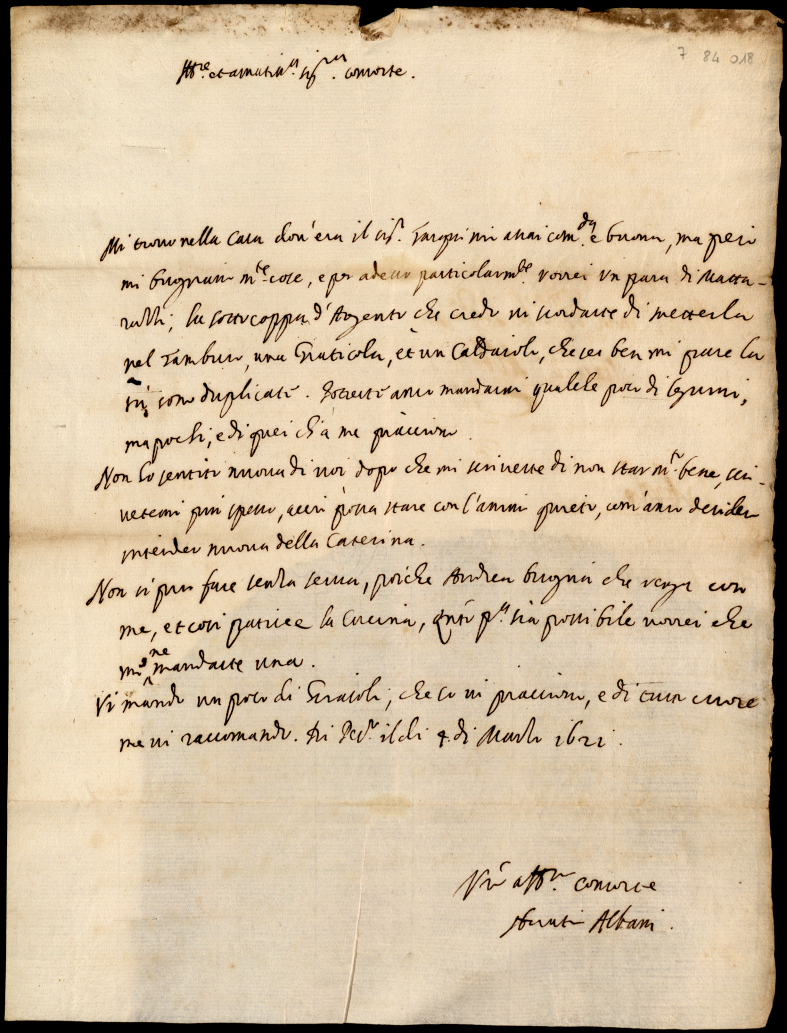 7 84 018
Ill.re et amatiss.a sig.ra consorte.
Mi trovo nella casa dov'era il sig.r assai com.da e buona, ma però
mi bisognano m.te cose, e per adesso particolarm.te vorrei un para di Matta-
razzi; la sottocoppa d'Argento che credo vi scordaste di metterla
nel Tamburo, una Graticola, et un Caldarolo, che se ben mi pare la
sù sono duplicate. Potreste anco mandarmi qualche poco di legumi,
ma pochi, e di quei ch'à me piaccion.
Non hò sentito nuova di voi dopo che mi scriveste di non star m.to bene, scri-
vetemi più spesso, acciò possa stare con l'animo quieto, com'anco desidero
intender nuova della Caterina.
Non si può fare senza serva, poiche Andrea bisogna che venga con
me, et così patisce la Cucina, q.nto p.a sia possibile vorrei che
me ne mandaste una.
Vi mando un poco di, che so vi piaccion, e di tutto cuore
me vi raccomando. Di il dì 4 di Marzo 1621.
V.ro aff.mo consorte
Horatio Albani.